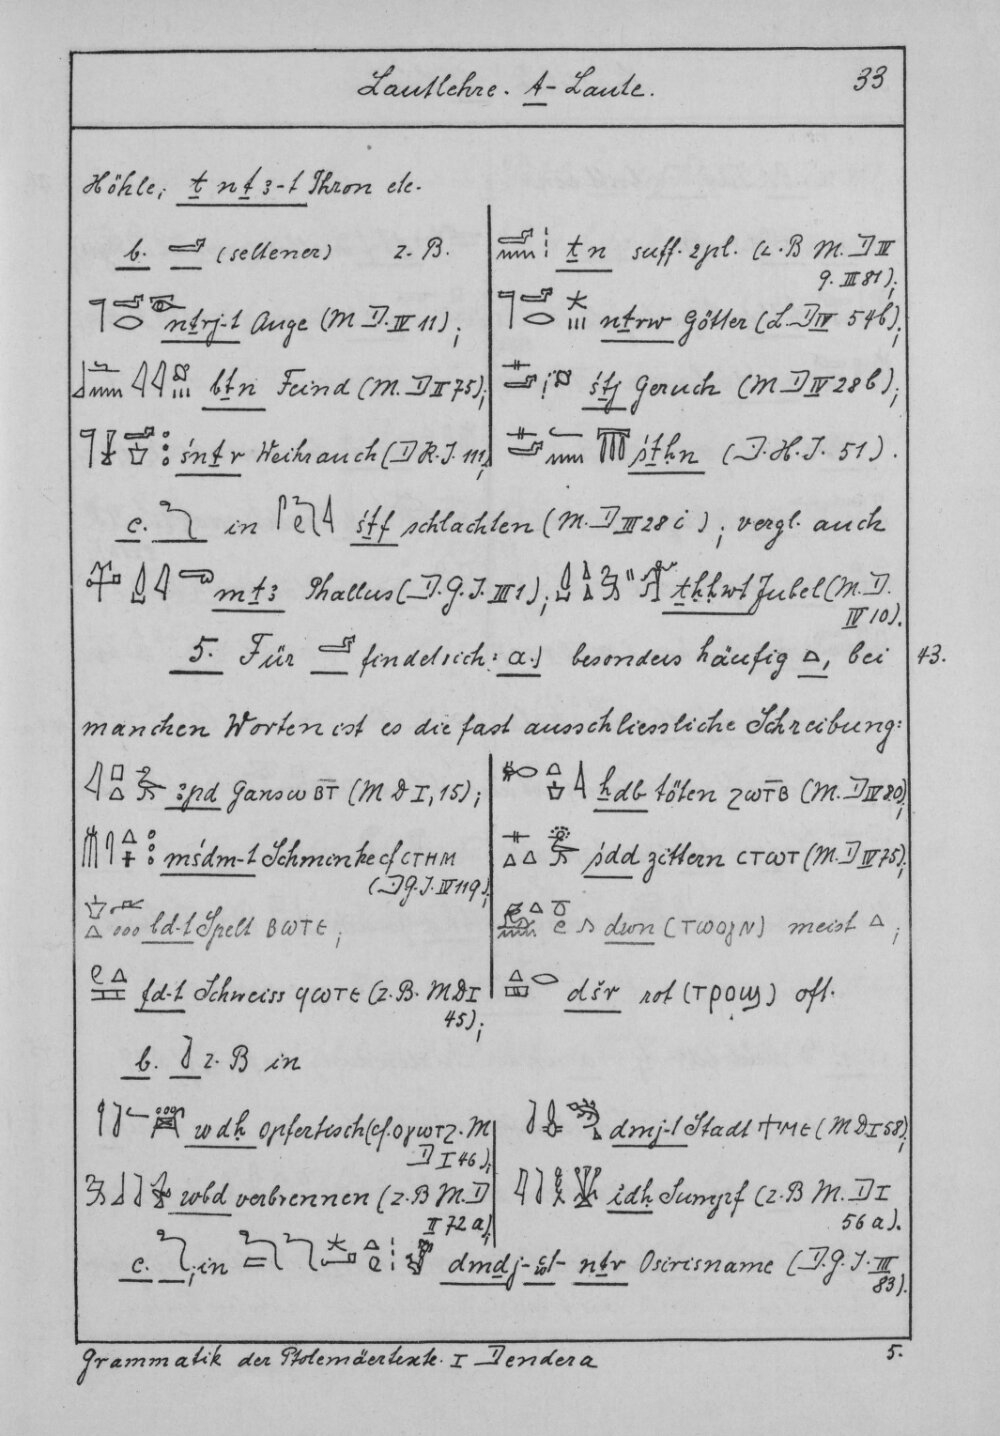 Lautlehre. A-Laute. 33
Höhle; ṯnṯꜣ-t Thron etc.
b. (seltener) z. B.
ṯn suff. 2pl. (z.B M. D II
9. III 81);
nṯrj-t Auge (M D. IV 11);
nṯrw Götter (L. D IV 54b);
bṯn Feind (M. D II 75);
śṯj Geruch (M D IV 28b);
śnṯr Weihrauch (D R. J. 111);
śṯḥn (D. H. J. 51).
c. in śṯf schlachten (M. D III 28 i); vergl. auch
mṯꜣ Phallus (D. G. J. III 1); ṯḥḥwt Jubel (M. D.
IV 10).
5. Für findet sich: a.) besonders häufig, bei 43.
manchen Worten ist es die fast ausschliessliche Schreibung:
ꜣpd Gans ⲱⲃⲧ (M D I, 15);
ḫdb töten ϩⲱⲧⲃ (M. D IV 80);
mśdm-t Schminke cf ⲥⲧⲏⲙ
(D G. J. IV 119);
śdd zittern ⲥⲧⲱⲧ (M. D IV 75);
bd-t Spelt ⲃⲱⲧⲉ;
dwn (ⲧⲱⲟⲩⲛ) meist;
fd-t Schweiss ϥⲱⲧⲉ (z. B. M D I
45);
dšr rot (ⲧⲣⲟϣ) oft.
b. z. B in
wdḥ Opfertisch (cf. ⲟⲩⲱⲧϩ. M
D I 46);
dmj-t Stadt ϯⲙⲉ (M D I 58);
wbd verbrennen (z. B M. D
II 72 a);
idḥ Sumpf (z. B M. D I
56 a).
c. ; in dmdj- - nṯr Osirisname (D. G. J. III
83).
Grammatik der Ptolemäertexte. I Dendera 5.